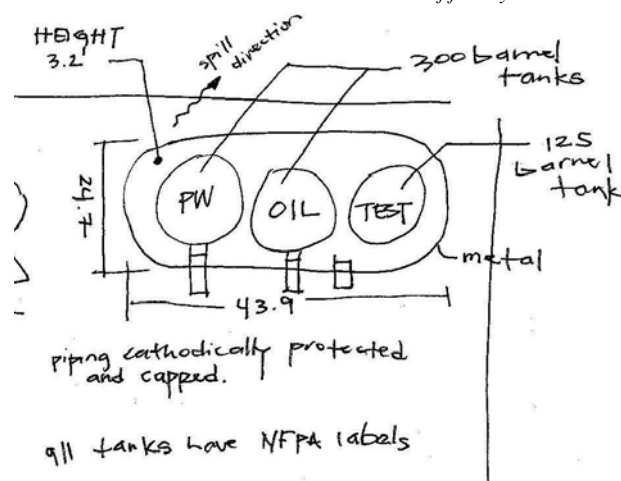 HEIGHT
3.2'
spill
direction
300 barrel
tanks
125
barrel
tank
24.7
PW
OIL
TEST
metal
43.9
piping cathodically protected
and capped.
all tanks have NFPA labels